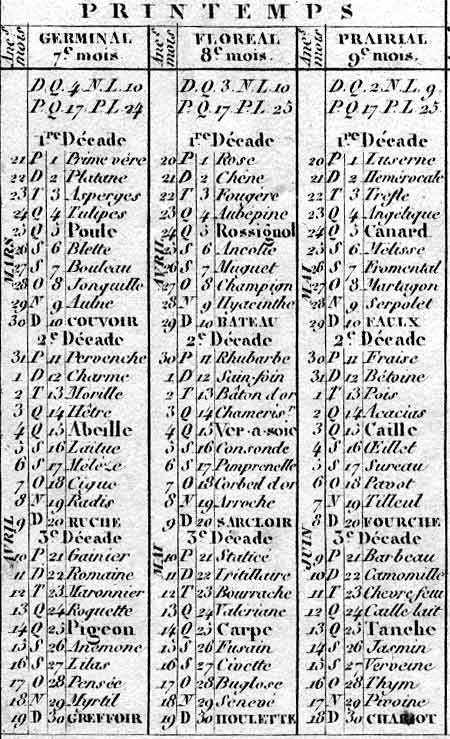 PRINTEMPS
Anc.s mois
GERMINAL
7.e mois.
D.Q. 4. N.L. 10
P.Q. 17. P.L. 24
1re Décade
MARS
21 P 1 Prime vére
22 D 2 Platane
23 T 3 Asperges
24 Q 4 Tulipes
25 Q 5 Poule
26 S 6 Blette
27 S 7 Bouleau
28 O 8 Jonquille
29 N 9 Aulne
30 D 10 COUVOIR
2e Décade
31 P 11 Pervenche
1 D 12 Charme
2 T 13 Morille
3 Q 14 Hêtre
4 Q 15 Abeille
5 S 16 Laitue
6 S 17 Méleze
7 O 18 Cigue
8 N 19 Radis
9 D 20 RUCHE
3e Décade
AVRIL
10 P 21 Gainier
11 D 22 Romaine
12 T 23 Maronnier
13 Q 24 Roquette
14 Q 25 Pigeon
15 S 26 Anémone
16 S 27 Lilas
17 O 28 Pensée
18 N 29 Myrtil
19 D 30 GREFFOIR
Anc.s mois
FLOREAL
8e mois.
D.Q. 3. N.L. 10
P.Q. 17. P.L. 25
1re Décade
AVRIL
20 P 1 Rose
21 D 2 Chêne
22 T 3 Fougère
23 Q 4 Aubepine
24 Q 5 Rossignol
25 S 6 Ancolie
26 S 7 Muguet
27 O 8 Champign
28 N 9 Hyacinthe
29 D 10 BATEAU
2e Décade
30 P 11 Rhubarbe
1 D 12 Sain-foin
2 T 13 Bâton d'or
3 Q 14 Chameris.r
4 Q 15 Ver-a-soie
5 S 16 Consonde
6 S 17 Pimprenelle
7 O 18 Corbeil d'or
8 N 19 Arroche
9 D 20 SARCLOIR
3e Décade
MAI
10 P 21 Staticé
11 D 22 Fritillaire
12 T 23 Bourrache
13 Q 24 Valériane
14 Q 25 Carpe
15 S 26 Fusain
16 S 27 Civette
17 O 28 Buglose
18 N 29 Senevé
19 D 30 HOULETTE
Anc.s mois
PRAIRIAL
9e mois.
D.Q. 2. N.L. 9.
P.Q. 17. P.L. 25
1re Décade
MAI
20 P 1 Luserne
21 D 2 Hemérocale
22 T 3 Trefle
23 Q 4 Angélique
24 Q 5 Canard
25 S 6 Mélisse
26 S 7 Fromental
27 O 8 Martagon
28 N 9 Serpolet
29 D 10 FAULX
2e Décade
30 P 11 Fraise
31 D 12 Bétoine
1 T 13 Pois
2 Q 14 Acacias
3 Q 15 Caille
4 S 16 Œillet
5 S 17 Sureau
6 O 18 Pavot
7 N 19 Tilleul
8 D 20 FOURCHE
3e Décade
JUIN
9 P 21 Barbeau
10 D 22 Camomille
11 T 23 Chevrefeuil
12 Q 24 Caille lait
13 Q 25 Tanche
14 S 26 Jasmin
15 S 27 Verveine
16 O 28 Thym
17 N 29 Pivoine
18 D 30 CHARIOT